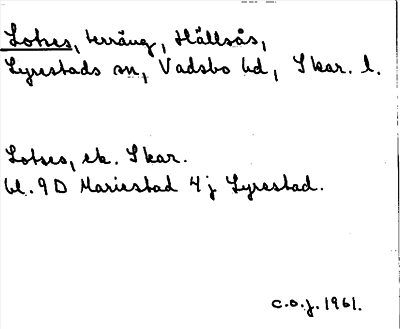 Lotses, terräng, Hällsås,
Lyrestads sn, Vadsbo hd, Skar. l.
Lotses, ek. Skar.
bl. 9 D Mariestad 4 j Lyrestad.
c.o.j. 1961.